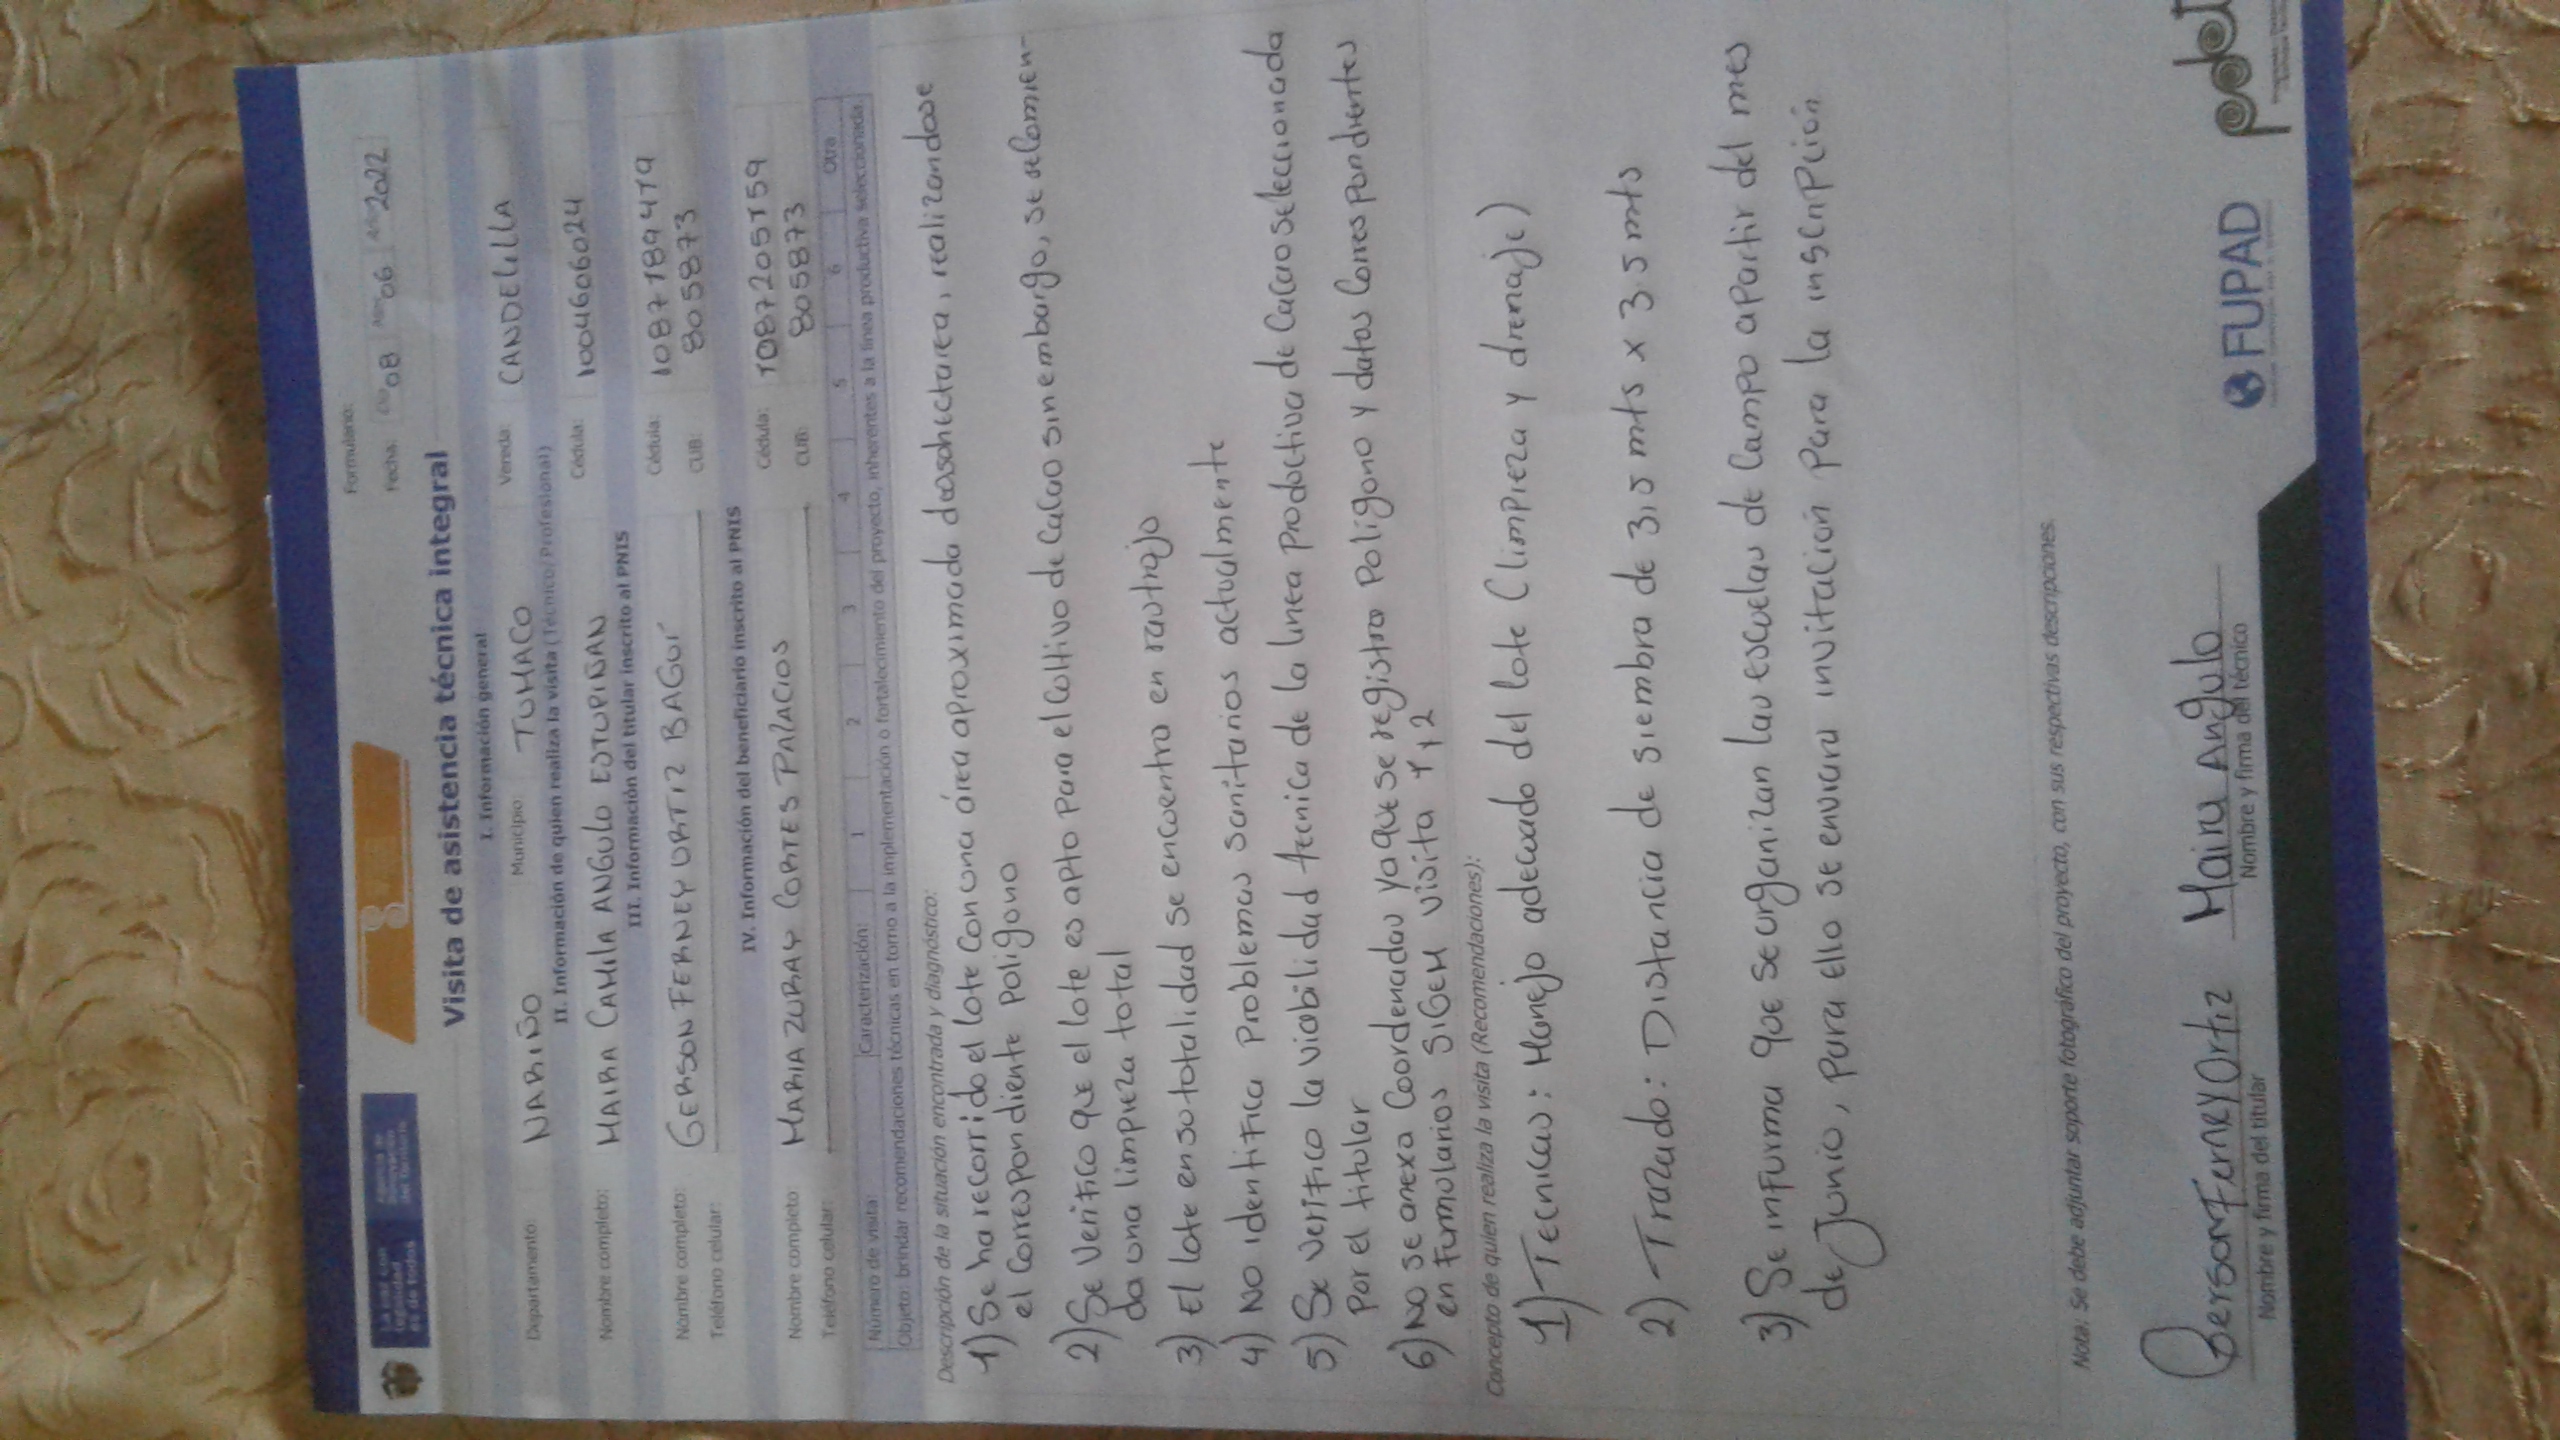 La paz con legalidad es de todos
Formulario:
Fecha: Día 08 Mes 06 Año 2022
Visita de asistencia técnica integral
I. Información general
Departamento: NARIÑO Municipio: TUMACO Vereda: CANDELILLA
II. Información de quien realiza la visita (Técnico/Profesional)
Nombre completo: MAIRA CAMILA ANGULO ESTUPIÑAN Cédula: 1004606024
III. Información del titular inscrito al PNIS
Nombre completo: GERSON FERNEY ORTIZ BAGUI Cédula: 1087189479
Teléfono celular: CUB: 805873
IV. Información del beneficiario inscrito al PNIS
Nombre completo: MARIA ZURAY CORTES PALACIOS Cédula: 1087205159
Teléfono celular: CUB: 805873
Número de visita: Caracterización: 1 2 3 4 5 6 Otra
Objeto: brindar recomendaciones técnicas en torno a la implementación o fortalecimiento del proyecto, inherentes a la línea productiva seleccionada
Descripción de la situación encontrada y diagnóstico:
1) Se ha recorrido el lote con una área aproximada deasohectarea, realizandose
el correspondiente Poligono
2) Se Verifico que el lote es apto para el cultivo de Cacao sin embargo, se selomien-
da una limpieza total
3) El lote en su totalidad se encuentra en rastrojo
4) No identifica Problemas sanitarios actualmente
5) Se verifico la viabilidad tecnica de la linea Productiva de Cacao seleccionada
Por el titular
6) No se anexa Coordenadas ya que se registro Poligono y datos Correspondientes
en Formularios SIGEM visita 1,2
Concepto de quien realiza la visita (Recomendaciones):
1) Tecnicas: Manejo adecuado del lote (limpieza y drenaje)
2) Trazado: Distancia de siembra de 3,5 mts x 3.5 mts
3) Se informa que se organizan las escuelas de Campo apartir del mes
de Junio, para ello se enviara invitación Para la inscripción
Nota: Se debe adjuntar soporte fotográfico del proyecto, con sus respectivas descripciones.
Gerson Ferney Ortiz Maira Angulo
Nombre y firma del titular Nombre y firma del técnico
FUPAD pdet